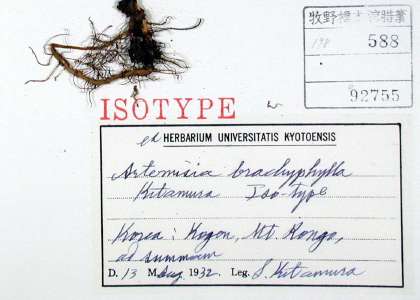 牧野標本
588
92755
ISOTYPE
ex HERBARIUM UNIVERSITATIS KYOTOENSIS
Artemisia brachyphylla
Kitamura Iso-type
Korea: Kogen, Mt. Kongo,
ad summum
D. 13 M. Aug 1932. Leg. S. Kitamura